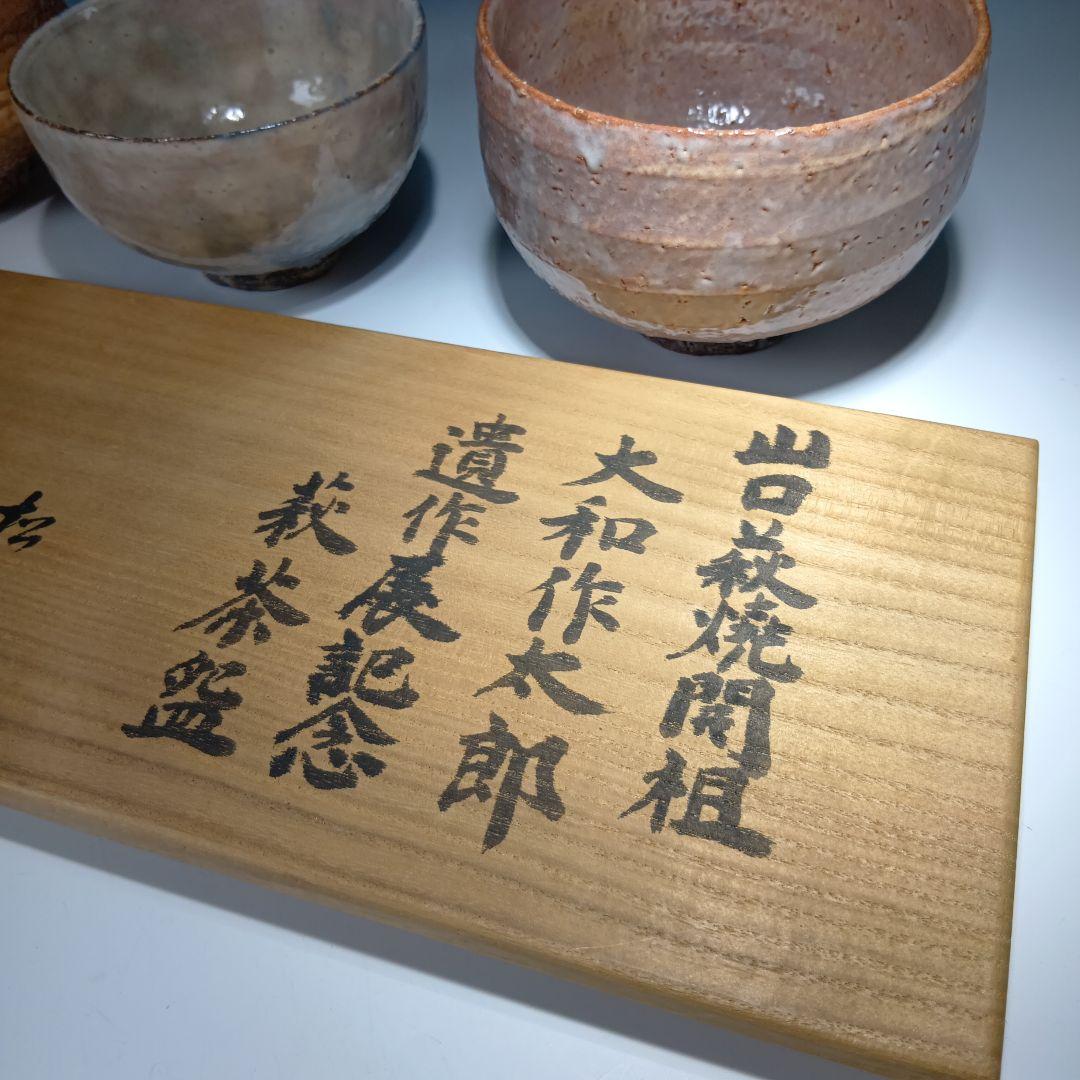 山口萩燒開祖
大和作太郎
遺作展記念
萩茶盌